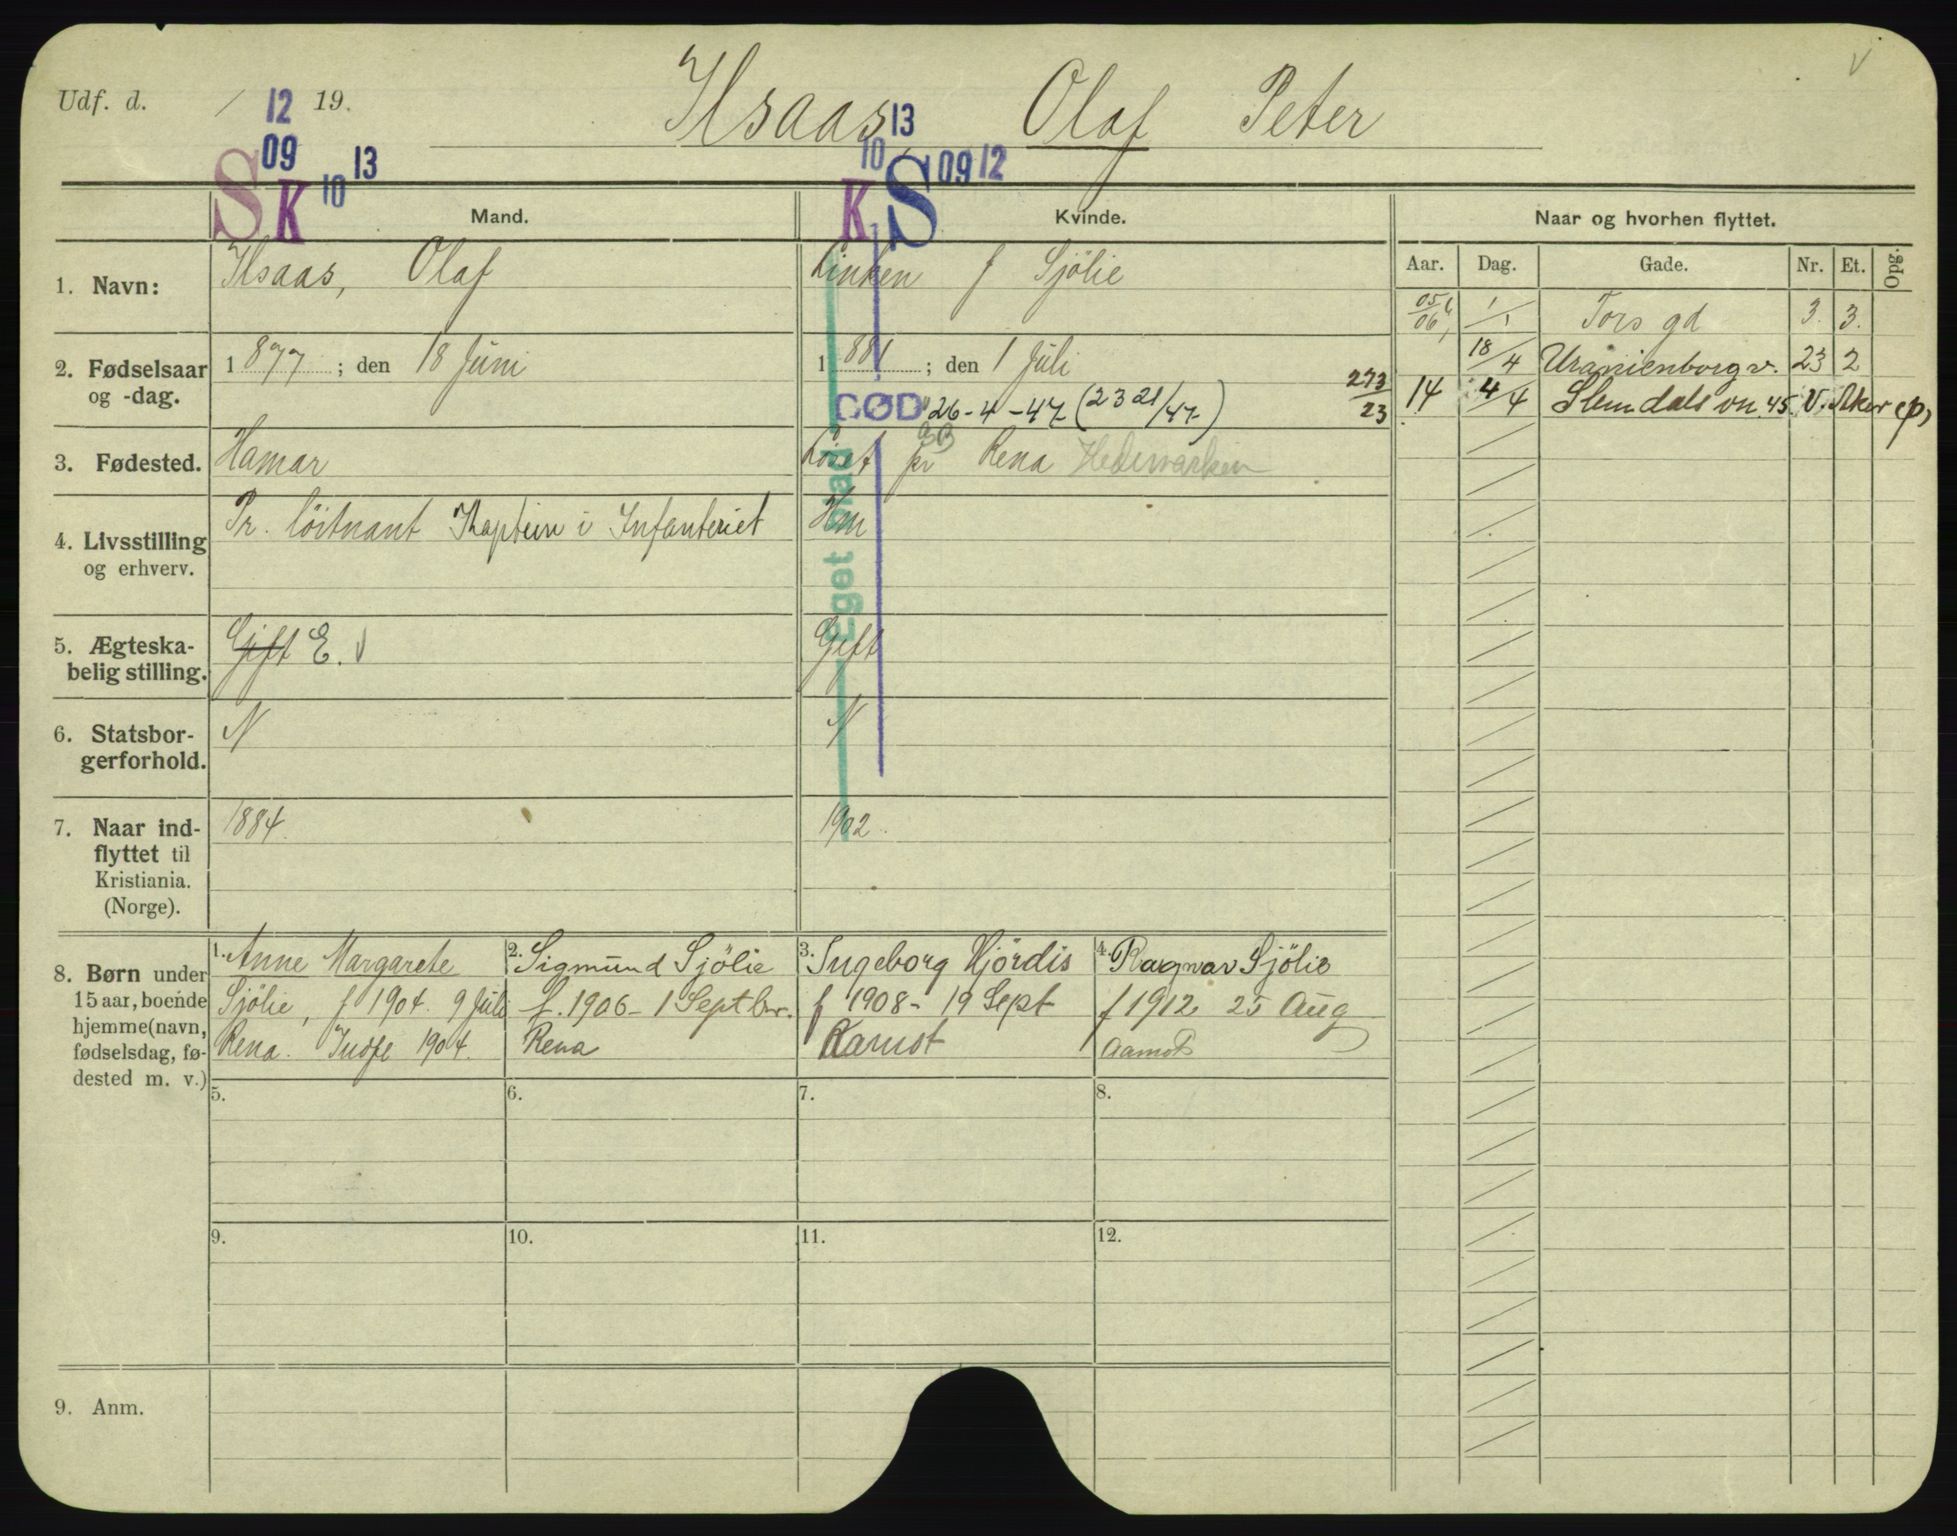 Udf. d. / 12 19.
Ilsaas, Olaf Peter
v
S 09 K 10 13
13 10 K S 09 12
Mand.
Kvinde.
Naar og hvorhen flyttet.
Aar. Dag. Gade. Nr. Et. Opg.
1. Navn:
Ilsaas, Olaf
Linken f Sjölie
2. Fødselsaar
og -dag.
1877; den 18 Juni
1881; den 1 Juli
DØD 26-4-47 (2321/47)
3. Fødested.
Hamar
pr Rena Hedemarken
4. Livsstilling
og erhverv.
Pr. löitnant Kaptein i Infanteriet
Hm
5. Ægteska-
belig stilling.
Gift E. v
Gift
6. Statsbor-
gerforhold.
N
N
7. Naar ind-
flyttet til
Kristiania.
(Norge).
1884.
1902.
Eget blad
05/06 1/1 Tors gd 3. 3.
18/4 Uranienborgv. 23 2
273/23 14 4/4 Slemdalsvn. 45. V. Aker (p)
8. Børn under
15 aar, boende
hjemme (navn,
fødselsdag, fø-
dested m. v.)
1. Anne Margarete
Sjölie, f 1904. 9 Juli
Rena. Indfl 1904.
2. Sigmund Sjölie
f. 1906 - 1 Septbr.
Rena
3. Ingeborg Hjördis
f 1908 - 19 Sept
Aamot
4. Ragnar Sjölie
f 1912 25 Aug
Aamot
5. 6. 7. 8.
9. 10. 11. 12.
9. Anm.